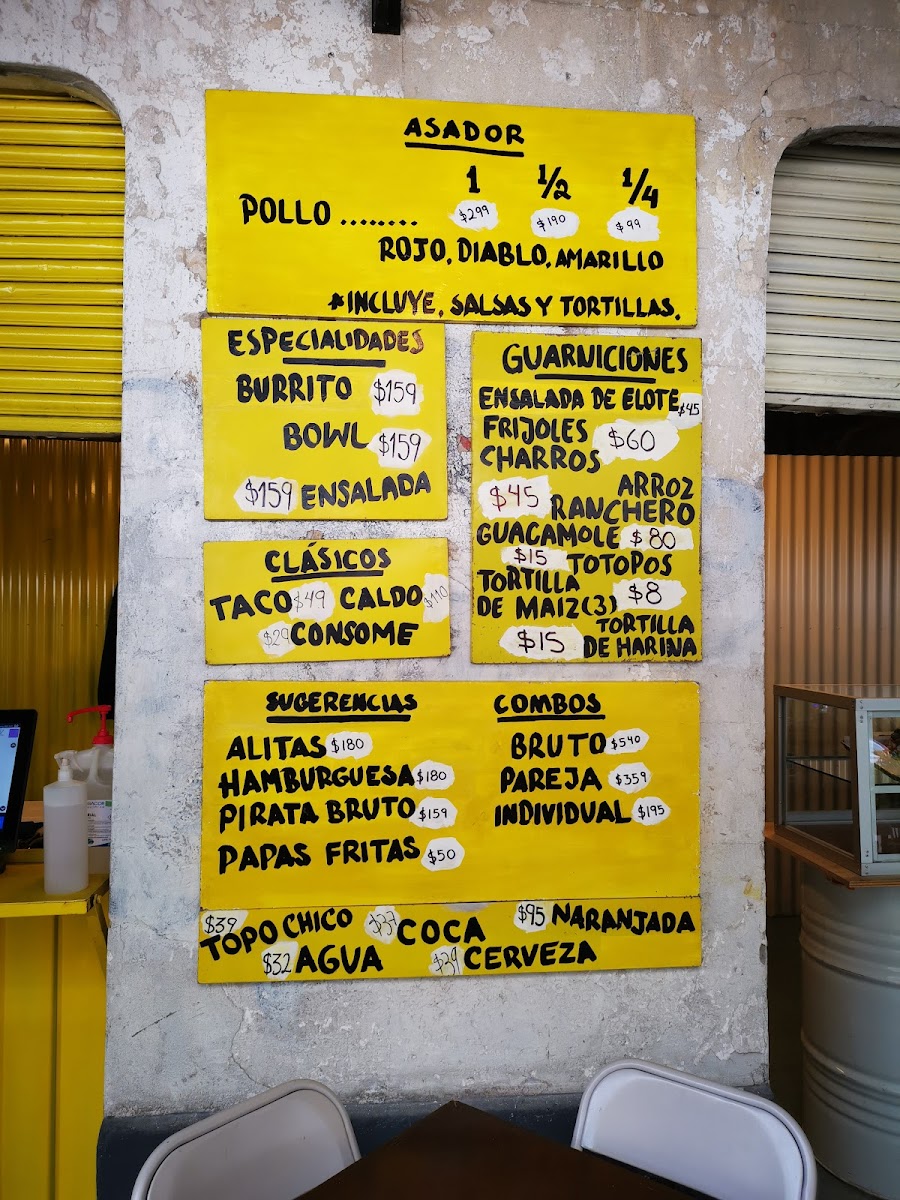 ASADOR
1 1/2 1/4
POLLO ........ $299 $190 $99
ROJO, DIABLO, AMARILLO
*INCLUYE, SALSAS Y TORTILLAS.
ESPECIALIDADES
BURRITO $159
BOWL $159
$159 ENSALADA
CLÁSICOS
TACO $49 CALDO $110
$29 CONSOME
GUARNICIONES
ENSALADA DE ELOTE $45
FRIJOLES
CHARROS $60
$45 ARROZ
RANCHERO
GUACAMOLE $80
$15 TOTOPOS
TORTILLA
DE MAIZ(3) $8
$15 TORTILLA
DE HARINA
SUGERENCIAS
ALITAS $180
HAMBURGUESA $180
PIRATA BRUTO $159
PAPAS FRITAS $50
COMBOS
BRUTO $540
PAREJA $359
INDIVIDUAL $195
$39 TOPO CHICO $37 COCA $95 NARANJADA
$32 AGUA $39 CERVEZA